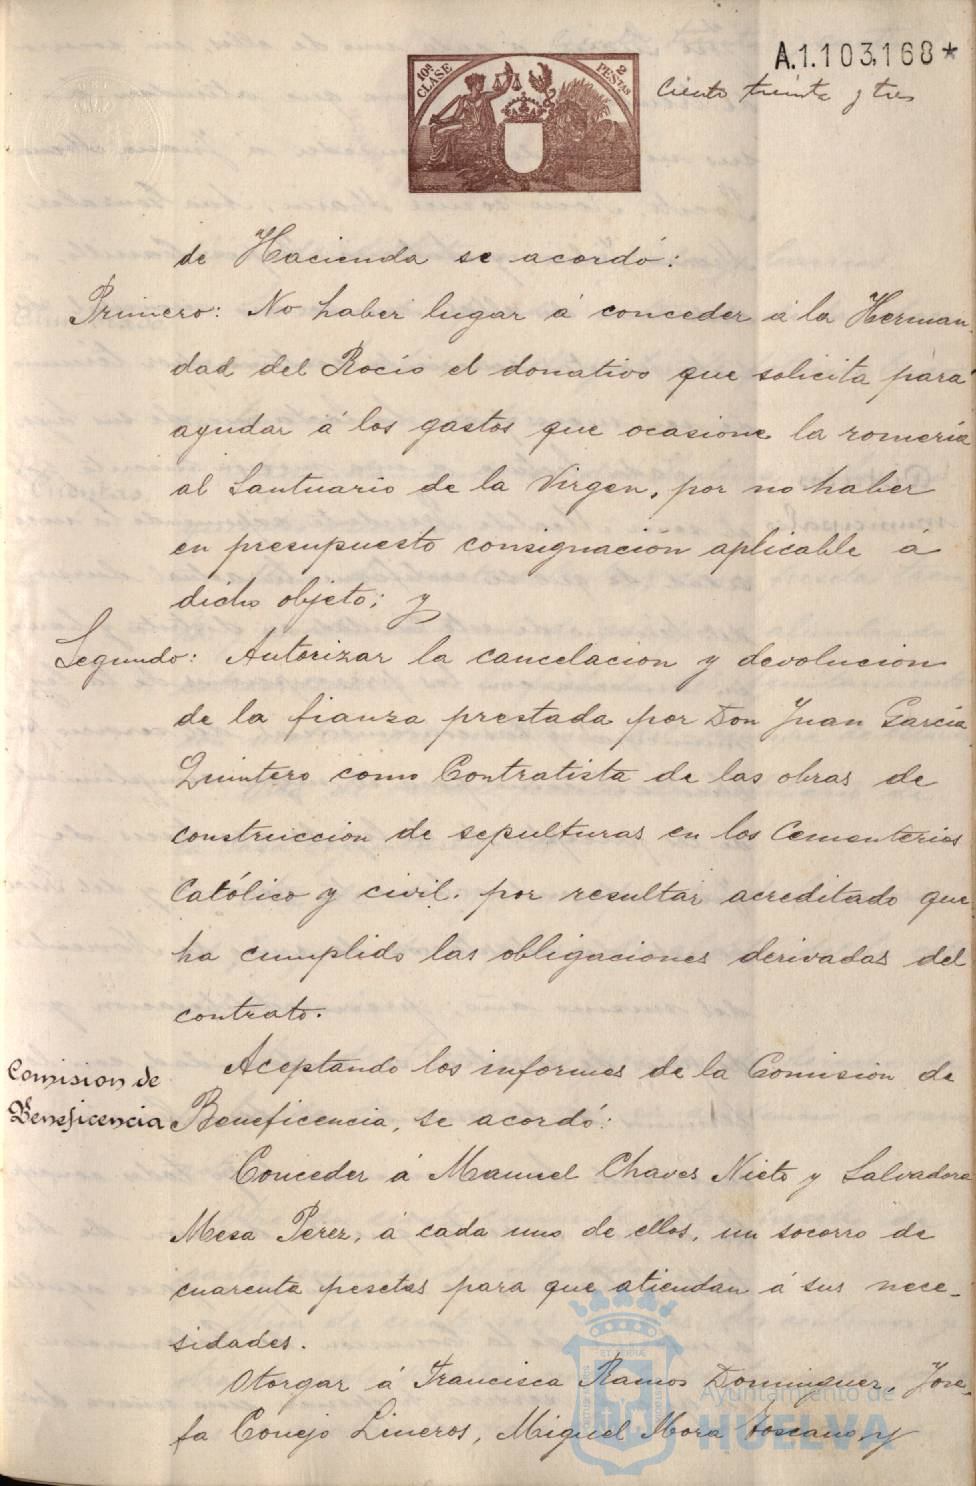 A.1.103,168*
10ª CLASE
2 PESETAS
Ciento treinta y tres
de Hacienda se acordó:
Primero: No haber lugar á conceder á la Herman-
dad del Rocío el donativo que solicita para
ayudar á los gastos que ocasione la romería
al Santuario de la Virgen, por no haber
en presupuesto consignación aplicable á
dicho objeto; y
Segundo: Autorizar la cancelacion y devolucion
de la fianza prestada por Don Juan García
Quintero como Contratista de las obras de
construccion de sepulturas en los Cementerios
Católico y civil, por resultar acreditado que
ha cumplido las obligaciones derivadas del
contrato.
Comision de
Beneficencia
Aceptando los informes de la Comisión de
Beneficencia, se acordó:
Conceder á Manuel Chaves Nieto y Salvadora
Mesa Perez, á cada uno de ellos, un socorro de
cuarenta pesetas para que atiendan á sus nece-
sidades.
Otorgar á Francisca Ramos Dominguez, Jose-
fa Conejo Lineros, Miguel Mora Toscano, y
Ayuntamiento de
HUELVA